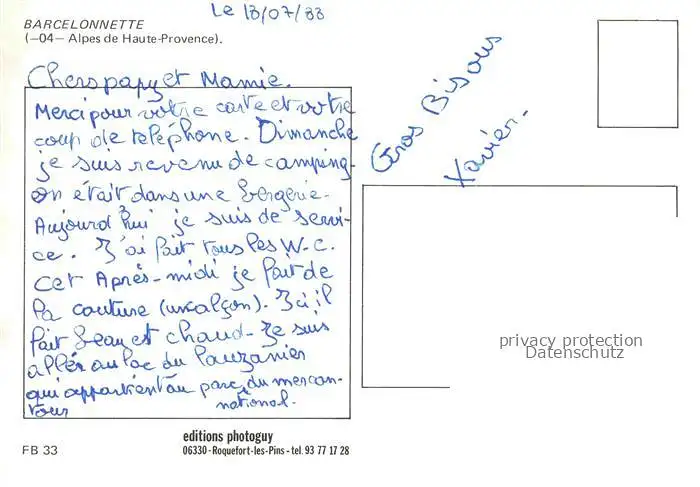 Le 18/07/88
BARCELONNETTE
(—04— Alpes de Haute-Provence).
Chers papy et Mamie.
Merci pour votre carte et votre
coup de telephone. Dimanche
je suis revenu de camping.
on était dans une bergerie.
Aujourd'hui je suis de servi-
ce. J'ai fait tous les W.C.
Cet Après-midi je fait de
la couture (un calçon). Ici il
fait beau et chaud. Je suis
allé au lac du Lauzanier
qui appartient au parc du mercan-
tour national.
Gros Bisous
Xavier.
privacy protection
Datenschutz
editions photoguy
06330 - Roquefort-les-Pins - tel. 93 77 17 28
FB 33